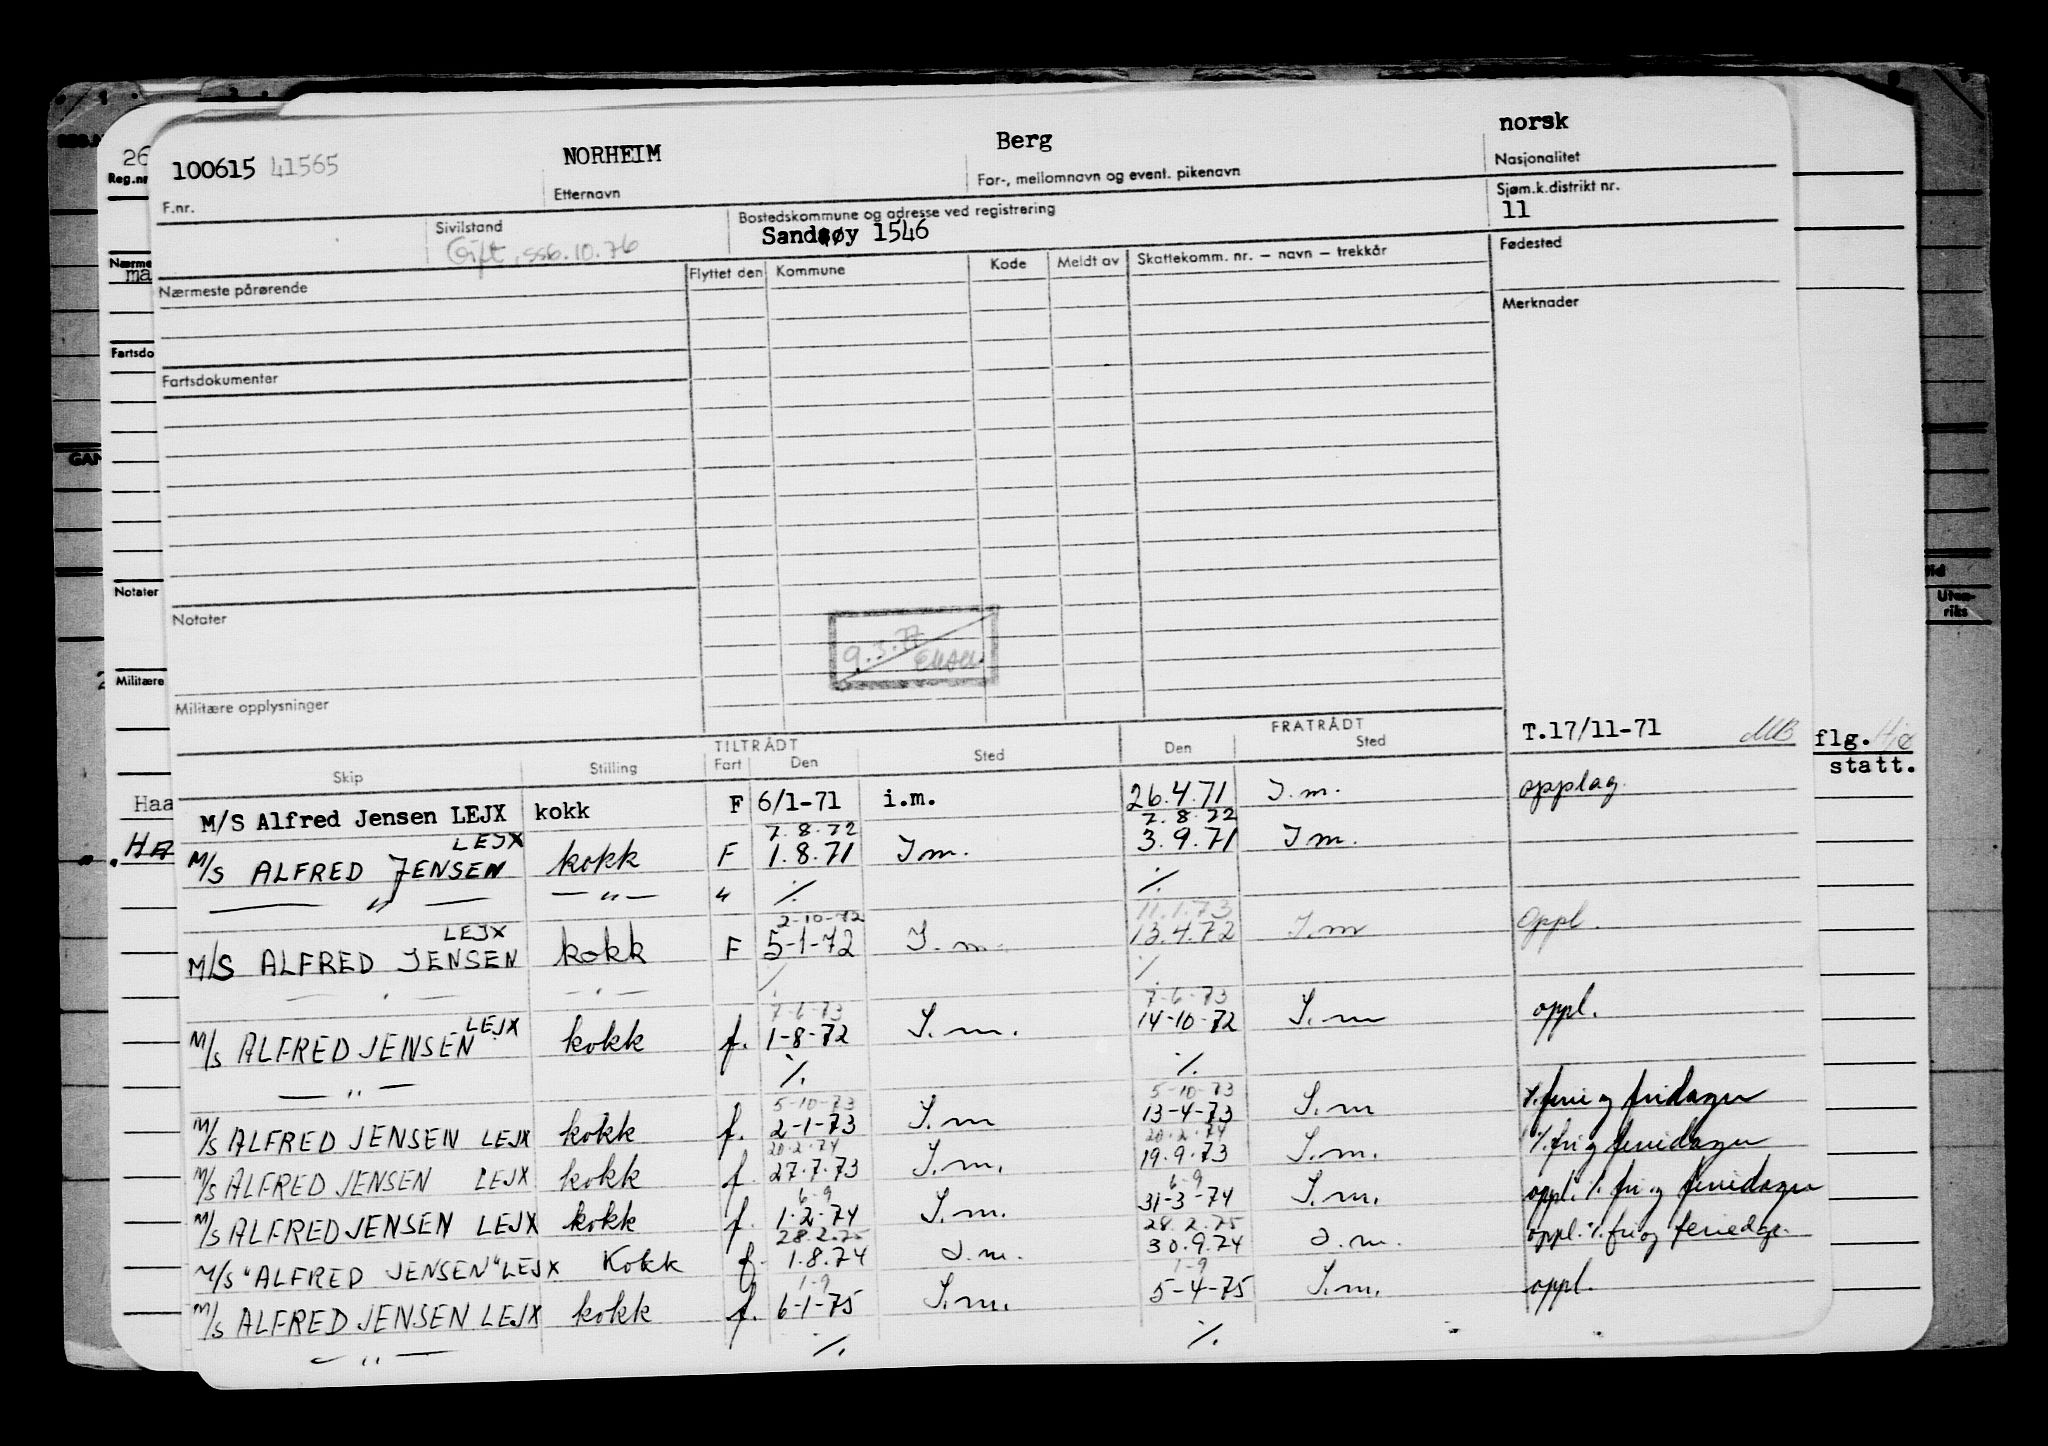 100615 41565 NORHEIM Berg norsk
F.nr. Etternavn For-, mellomnavn og event. pikenavn Nasjonalitet
Sivilstand Bostedskommune og adresse ved registrering Sjøm.k.distrikt nr.
Gift, ssb. 10.76 Sandsøy 1546 11
Nærmeste pårørende Flyttet den Kommune Kode Meldt av Skattekomm. nr. — navn — trekkår Fødested
Merknader
Fartsdokumenter
Notater
9.3.77
Militære opplysninger
T.17/11-71 MB
TILTRÅDT FRATRÅDT
Skip Stilling Fart Den Sted Den Sted
M/S Alfred Jensen LEJX kokk F 6/1-71 i.m. 26.4.71 I.m. opplag.
LEJX 7.8.72 7.8.72
M/S ALFRED JENSEN kokk F 1.8.71 I m. 3.9.71 I m.
— " — — " — " ./. ./.
LEJX 2-10-72 11.1.73
M/S ALFRED JENSEN kokk F 5-1-72 I.m. 13.4.72 I.m Oppl.
./. ./.
LEJX 7-6-73 7-6-73
M/S ALFRED JENSEN kokk f. 1-8-72 I.m. 14-10-72 I.m oppl.
— " — ./. ./.
5-10-73 5-10-73
M/S ALFRED JENSEN LEJX kokk f. 2-1-73 I.m 13-4-73 I.m ./. ferie og fridager
20.2.74 20.2.74
M/S ALFRED JENSEN LEJX kokk f. 27.7.73 I.m. 19.9.73 I.m. ./. fri og feriedager
6-9 6-9
M/S ALFRED JENSEN LEJX kokk f. 1.2.74 I.m. 31-3-74 I.m. oppl. ./. fri og feriedager
28.2.75 28.2.75
M/S "ALFRED JENSEN" LEJX Kokk f. 1.8.74 I.m. 30.9.74 I.m. oppl. ./. fri og feriedge.
1-9 1-9
M/S ALFRED JENSEN LEJX kokk f. 6-1-75 I.m. 5-4-75 I.m. oppl.
— " — ./. ./.
26
Reg.nr
Nærme
ma
Fartsdo
GAN
Notater
Militære
Haa
flg.
statt.
Uten-
riks